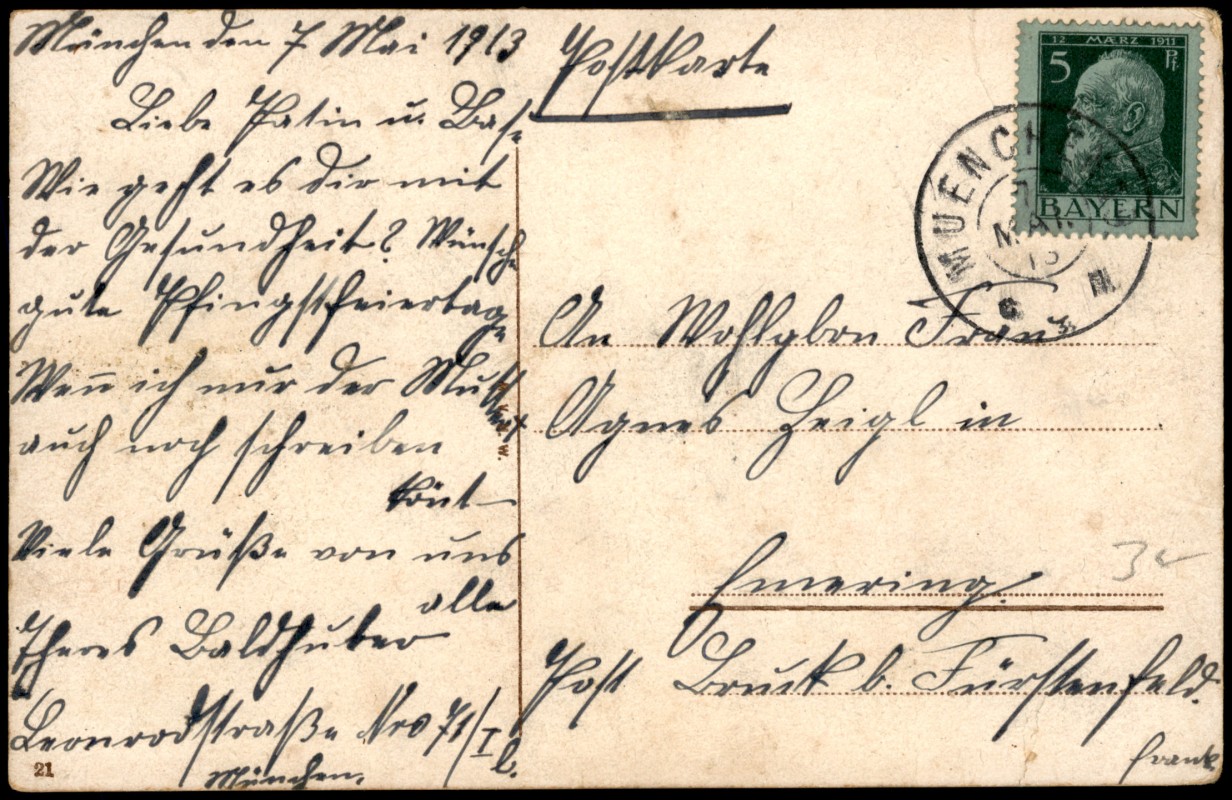 München den 7 Mai 1913
Liebe Patin u. Base
Wie geht es dir mit
der Gesundheit? Wünsche
gute Pfingstfeiertage
Wen̄ ich nur der Mutter
auch noch schreiben
kön̄t
Viele Grüße von uns
alle
Theres Baldhuber
Leonrodstraße Nro 71/I
l.
München.
21
Postkarte
12 MÆRZ 1911
5 Pf.
BAYERN
MUENCHEN
MAI
13
An Wohlgbor Frau
Agnes Zeigl in
Emering.
Post Bruck b. Fürstenfeld.
frank.